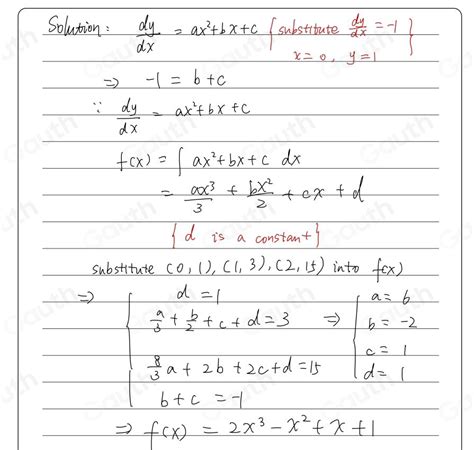 Solution: dy/dx = ax²+bx+c {substitute dy/dx = -1
x=0, y=1}
⇒ -1 = b+c
∵ dy/dx = ax²+bx+c
f(x) = ∫ ax²+bx+c dx
= ax³/3 + bx²/2 + cx + d
{d is a constant}
substitute (0,1), (1,3), (2,15) into f(x)
⇒ { d = 1
a/3 + b/2 + c + d = 3
8/3 a + 2b + 2c + d = 15
b + c = -1
⇒ { a = 6
b = -2
c = 1
d = 1
⇒ f(x) = 2x³ - x² + x + 1
Gauth